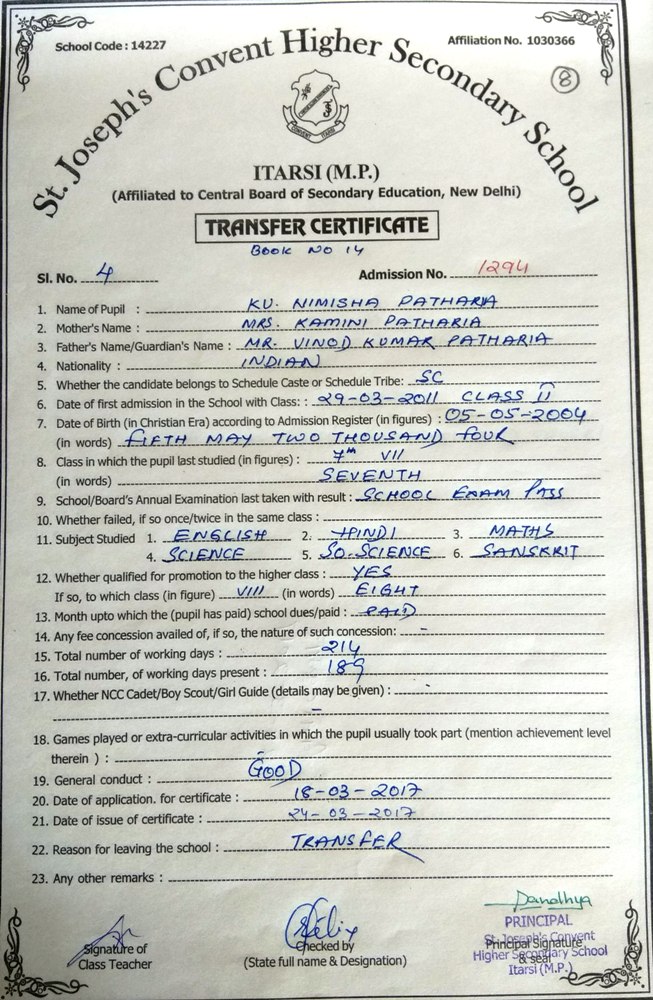 School Code : 14227
Affiliation No. 1030366
8
St. Joseph's Convent Higher Secondary School
ITARSI (M.P.)
(Affiliated to Central Board of Secondary Education, New Delhi)
TRANSFER CERTIFICATE
BOOK NO 14
Sl. No. 4 Admission No. 1294
1. Name of Pupil : KU. NIMISHA PATHARIA
2. Mother's Name : MRS. KAMINI PATHARIA
3. Father's Name/Guardian's Name : MR. VINOD KUMAR PATHARIA
4. Nationality : INDIAN
5. Whether the candidate belongs to Schedule Caste or Schedule Tribe: SC
6. Date of first admission in the School with Class: : 29-03-2011 CLASS II
7. Date of Birth (in Christian Era) according to Admission Register (in figures) : 05-05-2004
(in words) FIFTH MAY TWO THOUSAND FOUR
8. Class in which the pupil last studied (in figures) : 7th VII
(in words) SEVENTH
9. School/Board's Annual Examination last taken with result : SCHOOL EXAM PASS
10. Whether failed, if so once/twice in the same class :
11. Subject Studied 1. ENGLISH 2. HINDI 3. MATHS
4. SCIENCE 5. SO. SCIENCE 6. SANSKRIT
12. Whether qualified for promotion to the higher class : YES
If so, to which class (in figure) VIII (in words) EIGHT
13. Month upto which the (pupil has paid) school dues/paid : PAID
14. Any fee concession availed of, if so, the nature of such concession: -
15. Total number of working days : 214
16. Total number, of working days present : 189
17. Whether NCC Cadet/Boy Scout/Girl Guide (details may be given) : -
-
18. Games played or extra-curricular activities in which the pupil usually took part (mention achievement level
therein ) : -
19. General conduct : GOOD
20. Date of application. for certificate : 18-03-2017
21. Date of issue of certificate : 24-03-2017
22. Reason for leaving the school : TRANSFER
23. Any other remarks :
Signature of
Class Teacher
Checked by
(State full name & Designation)
PRINCIPAL
St. Joseph's Convent
Principal Signature
& seal
Higher Secondary School
Itarsi (M.P.)